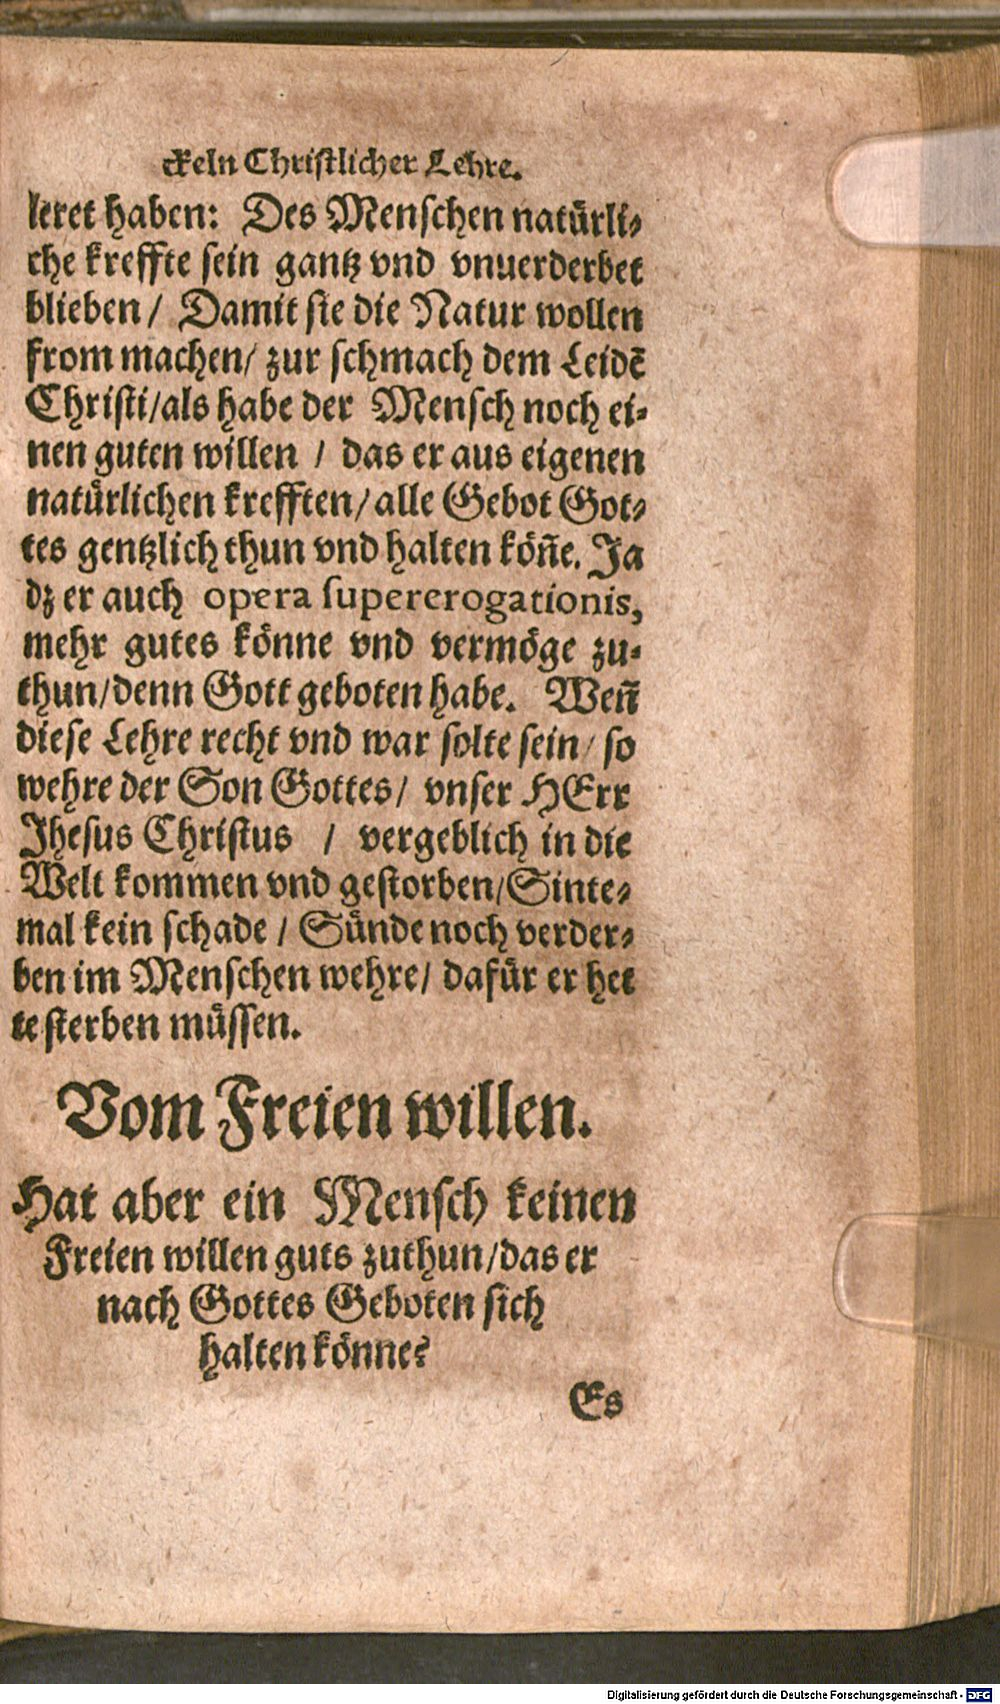 ckeln Christlicher Lehre.
leret haben: Des Menschen natürli-
che kreffte sein gantz vnd vnuerderbet
blieben / Damit sie die Natur wollen
from machen / zur schmach dem Leidē
Christi / als habe der Mensch noch ei-
nen guten willen / das er aus eigenen
natürlichen krefften / alle Gebot Got-
tes gentzlich thun vnd halten köñe. Ja
dz er auch opera supererogationis,
mehr gutes könne vnd vermöge zu-
thun / denn Gott geboten habe. Weñ
diese Lehre recht vnd war solte sein / so
wehre der Son Gottes / vnser HErr
Jhesus Christus / vergeblich in die
Welt kommen vnd gestorben / Sinte-
mal kein schade / Sünde noch verder-
ben im Menschen wehre / dafür er het
te sterben müssen.
Vom Freien willen.
Hat aber ein Mensch keinen
Freien willen guts zuthun / das er
nach Gottes Geboten sich
halten könne?
Es
Digitalisierung gefördert durch die Deutsche Forschungsgemeinschaft - DFG